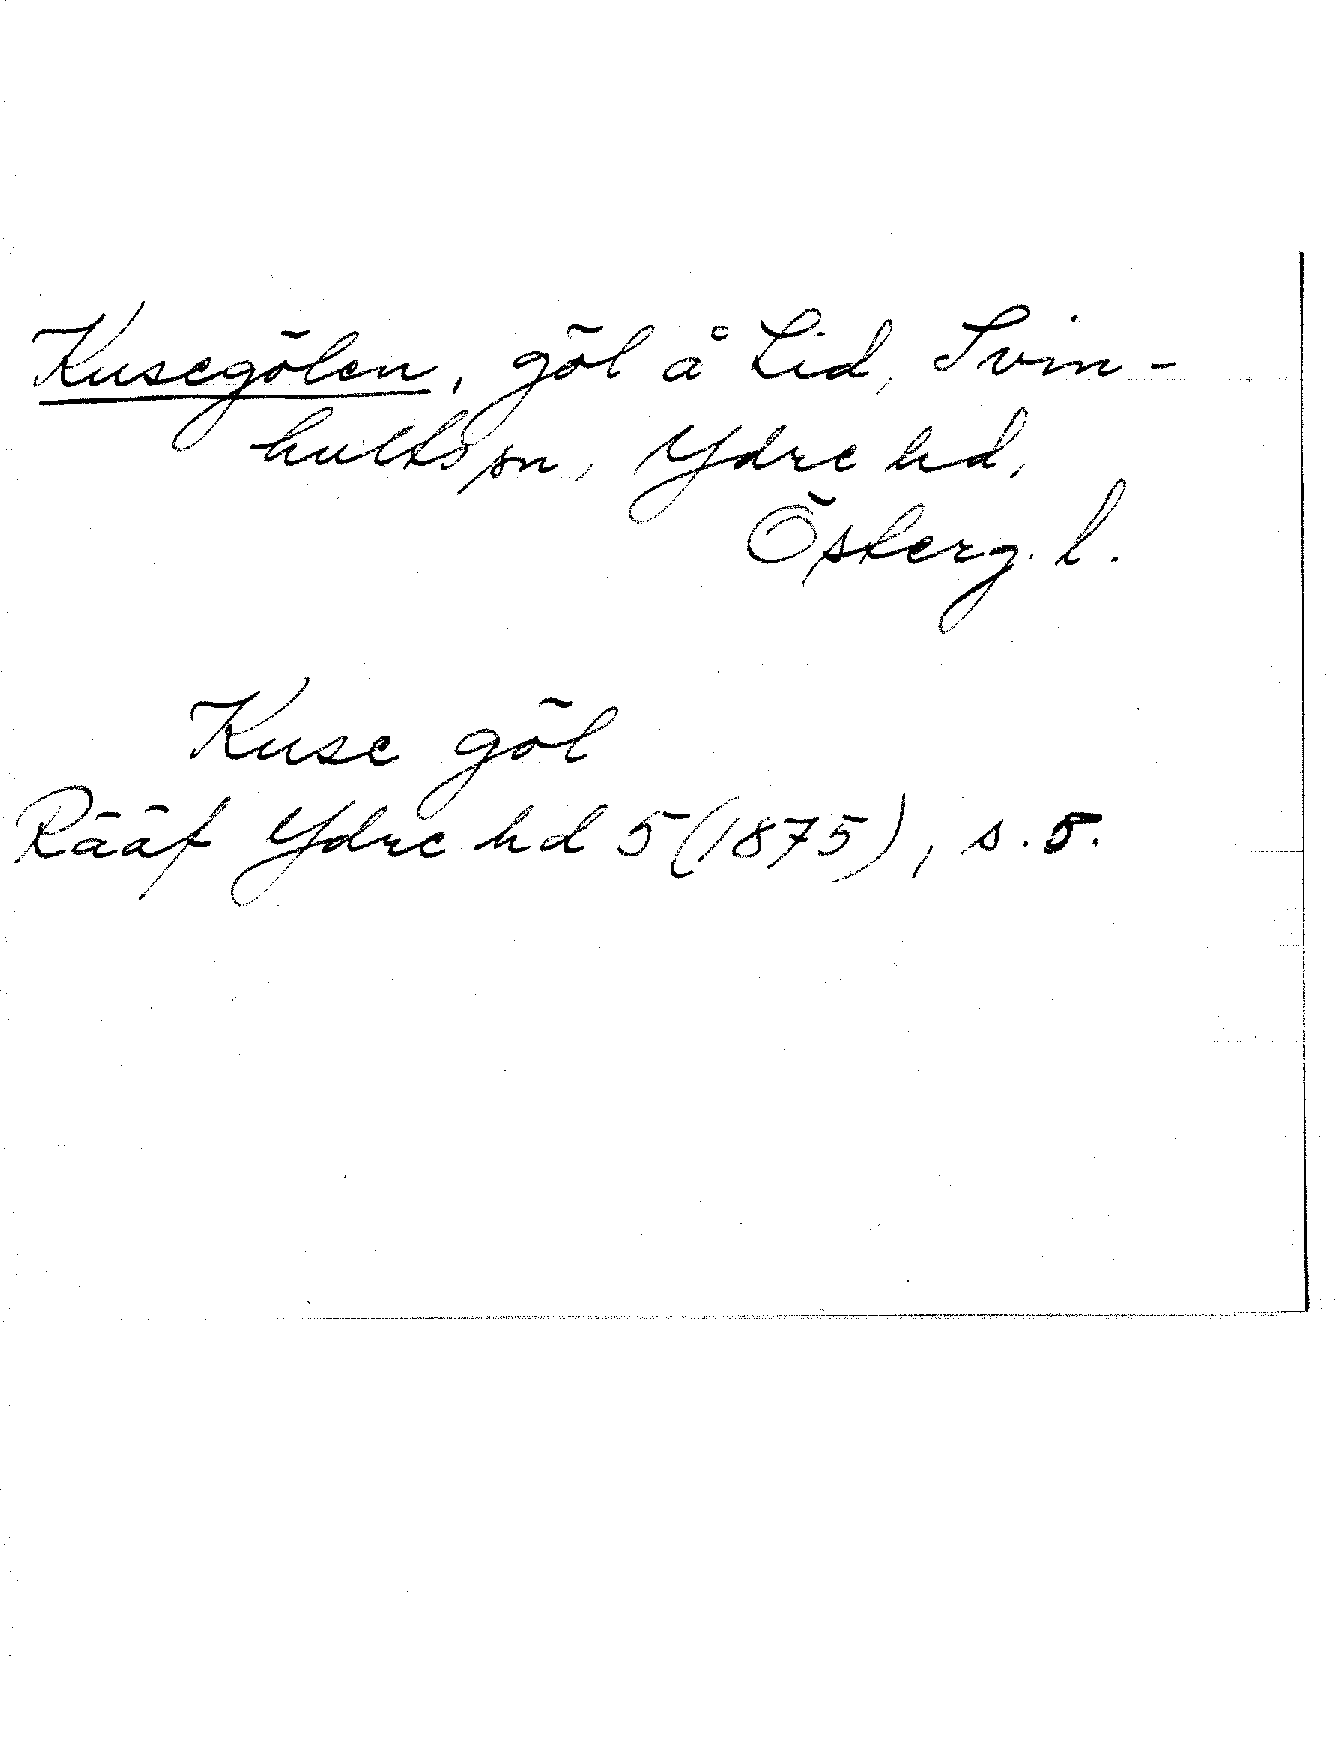 Kusegölen, göl å Lid, Svin-
hults sn, Ydre hd,
Österg. l.
Kuse göl
Rääf Ydre hd 5 (1875), s. 5.